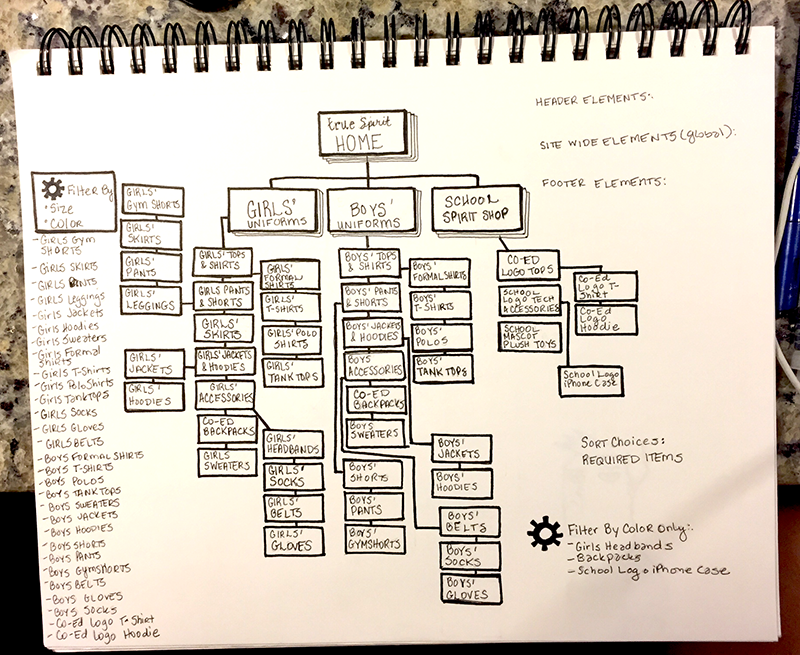 HEADER ELEMENTS:
SITE WIDE ELEMENTS (global):
FOOTER ELEMENTS:
true Spirit
HOME
GIRLS'
UNIFORMS
BOYS'
UNIFORMS
SCHOOL
SPIRIT SHOP
Filter By
* Size
* COLOR
- GIRLS GYM
SHORTS
- GIRLS SKIRTS
- GIRLS PANTS
- Girls Leggings
- Girls Jackets
- Girls Hoodies
- Girls Sweaters
- Girls Formal
Shirts
- Girls T-Shirts
- Girls Polo Shirts
- Girls Tanktops
- GIRLS SOCKS
- GIRLS GLOVES
- GIRLS BELTS
- BOYS FORMAL SHIRTS
- BOYS T-SHIRTS
- BOYS POLOS
- BOYS TANK TOPS
- BOYS SWEATERS
- BOYS JACKETS
- BOYS HOODIES
- BOYS SHORTS
- BOYS PANTS
- BOYS GYMSHORTS
- BOYS BELTS
- BOYS GLOVES
- BOYS SOCKS
- CO-ED LOGO T-Shirt
- CO-ED LOGO Hoodie
GIRLS'
GYM SHORTS
GIRLS'
SKIRTS
GIRLS'
PANTS
GIRLS'
LEGGINGS
GIRLS'
JACKETS
GIRLS'
HOODIES
GIRLS' TOPS
& SHIRTS
GIRLS PANTS
& SHORTS
GIRLS'
SKIRTS
GIRLS' JACKETS
& HOODIES
GIRLS'
ACCESSORIES
CO-ED
BACKPACKS
GIRLS
SWEATERS
GIRLS'
FORMAL
SHIRTS
GIRLS'
T-SHIRTS
GIRLS' POLO
SHIRTS
GIRLS'
TANK TOPS
GIRLS'
HEADBANDS
GIRLS'
SOCKS
GIRLS'
BELTS
GIRLS'
GLOVES
BOYS' TOPS
& SHIRTS
BOYS' PANTS
& SHORTS
BOYS' JACKETS
& HOODIES
BOYS
ACCESSORIES
CO-ED
BACKPACKS
BOYS
SWEATERS
BOYS'
SHORTS
BOYS'
PANTS
BOYS'
GYMSHORTS
BOYS'
FORMALSHIRTS
BOYS'
T-SHIRTS
BOYS'
POLOS
BOYS'
TANK TOPS
BOYS'
JACKETS
BOYS'
HOODIES
BOYS'
BELTS
BOYS'
SOCKS
BOYS'
GLOVES
CO-ED
LOGO TOPS
SCHOOL
LOGO TECH
ACCESSORIES
SCHOOL
MASCOT
PLUSH TOYS
CO-ED
LOGO T-
SHIRT
CO-ED
LOGO
Hoodie
School Logo
iPhone Case
SORT CHOICES:
REQUIRED ITEMS
Filter By Color Only:
- Girls Headbands
- Backpacks
- School Logo iPhone Case